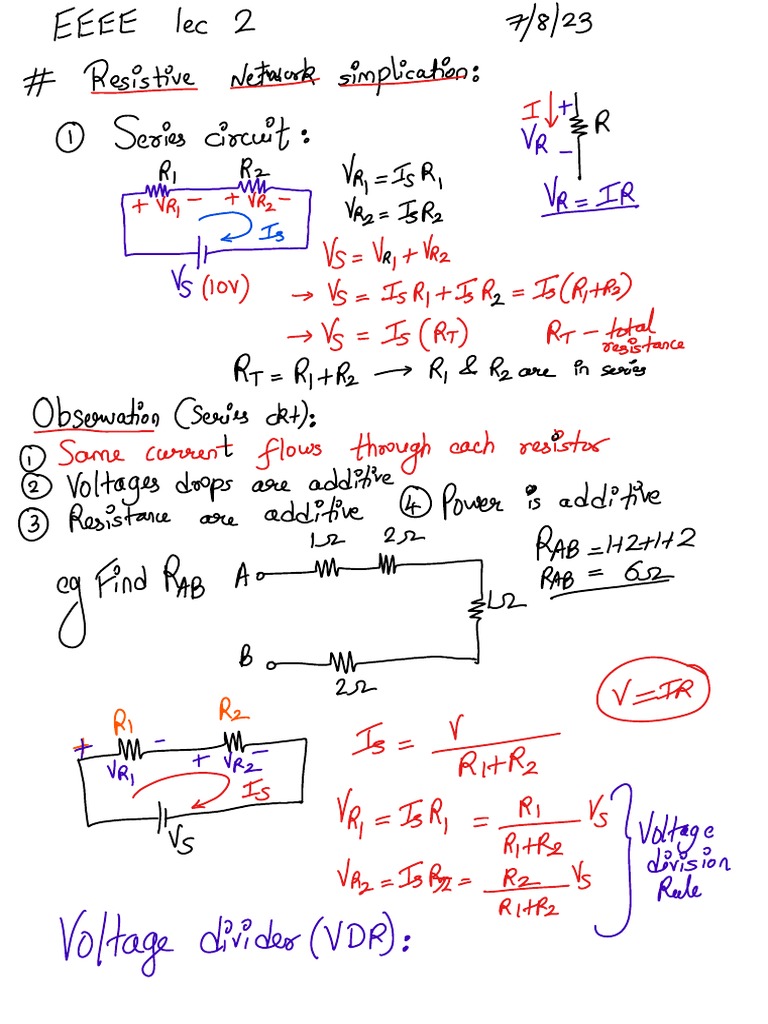 EEEE lec 2 7/8/23
# Resistive Network simplication:
① Series circuit:
R1 R2
+ VR1 - + VR2 -
Is
Vs (10V)
VR1 = Is R1
VR2 = Is R2
I + R
VR -
VR = IR
Vs = VR1 + VR2
→ Vs = Is R1 + Is R2 = Is (R1+R2)
→ Vs = Is (RT) RT - total resistance
RT = R1+R2 → R1 & R2 are in series
Observation (Series ckt):
① Same current flows through each resistor
② Voltages drops are additive
③ Resistance are additive ④ Power is additive
eg Find RAB
1Ω 2Ω
A
1Ω
B
2Ω
RAB = 1+2+1+2
RAB = 6Ω
V = IR
R1 R2
+ - + -
VR1 VR2
Is
Vs
Is = V / R1+R2
VR1 = Is R1 = R1 / R1+R2 Vs
VR2 = Is R2 = R2 / R1+R2 Vs
Voltage
division
Rule
Voltage divider (VDR):